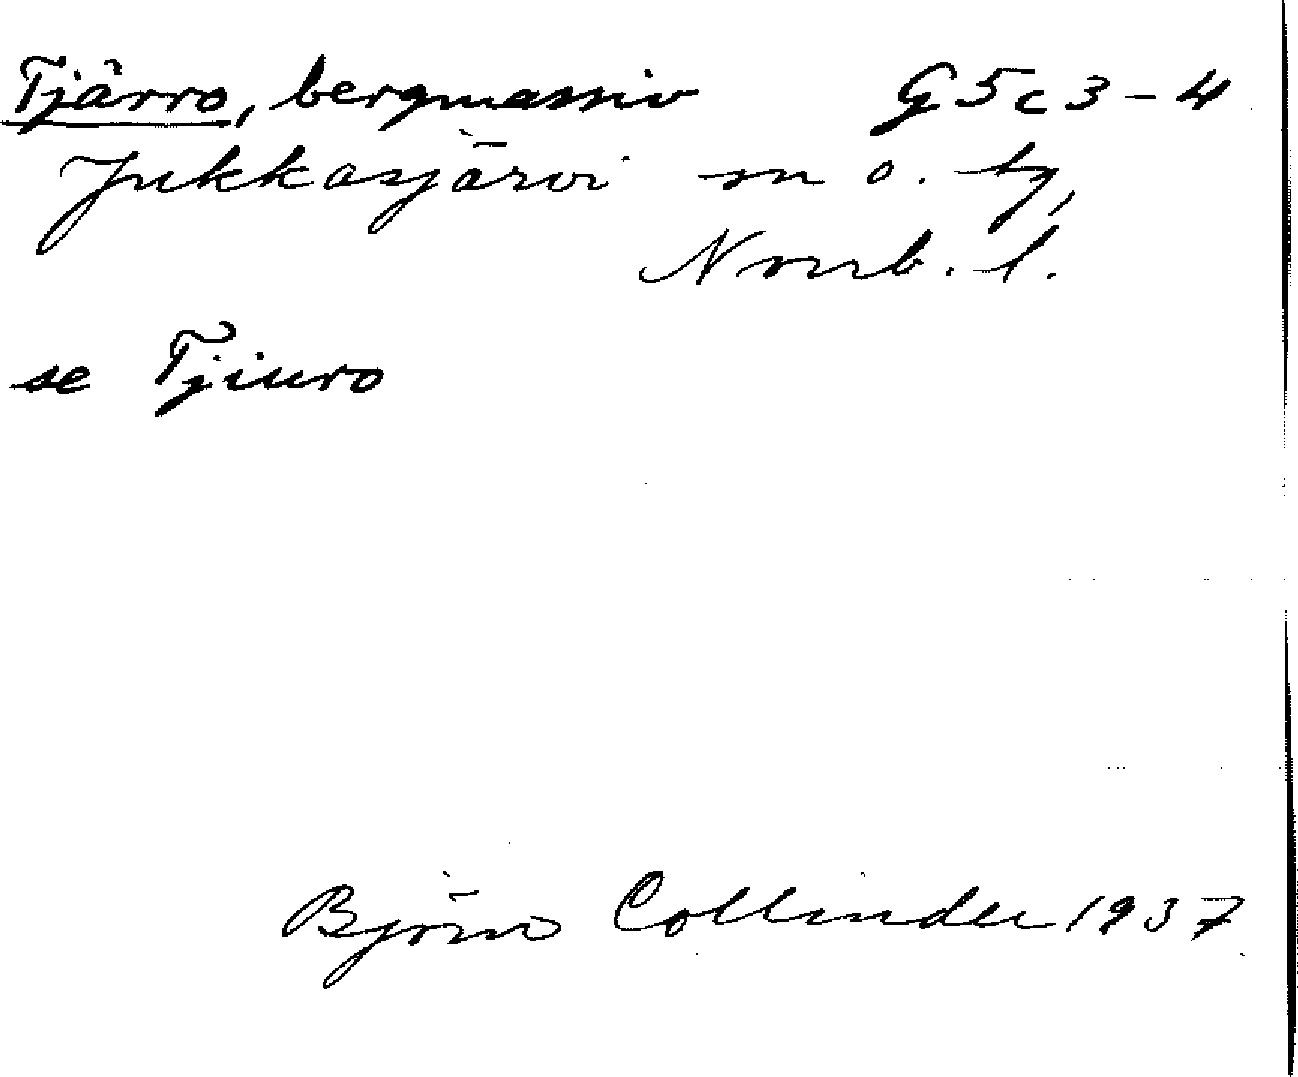 Tjårro, bergmassiv G5c3-4
Jukkasjärvi sn o. tg,
Norrb. l.
se Tjiuro
Björn Collinder 1937